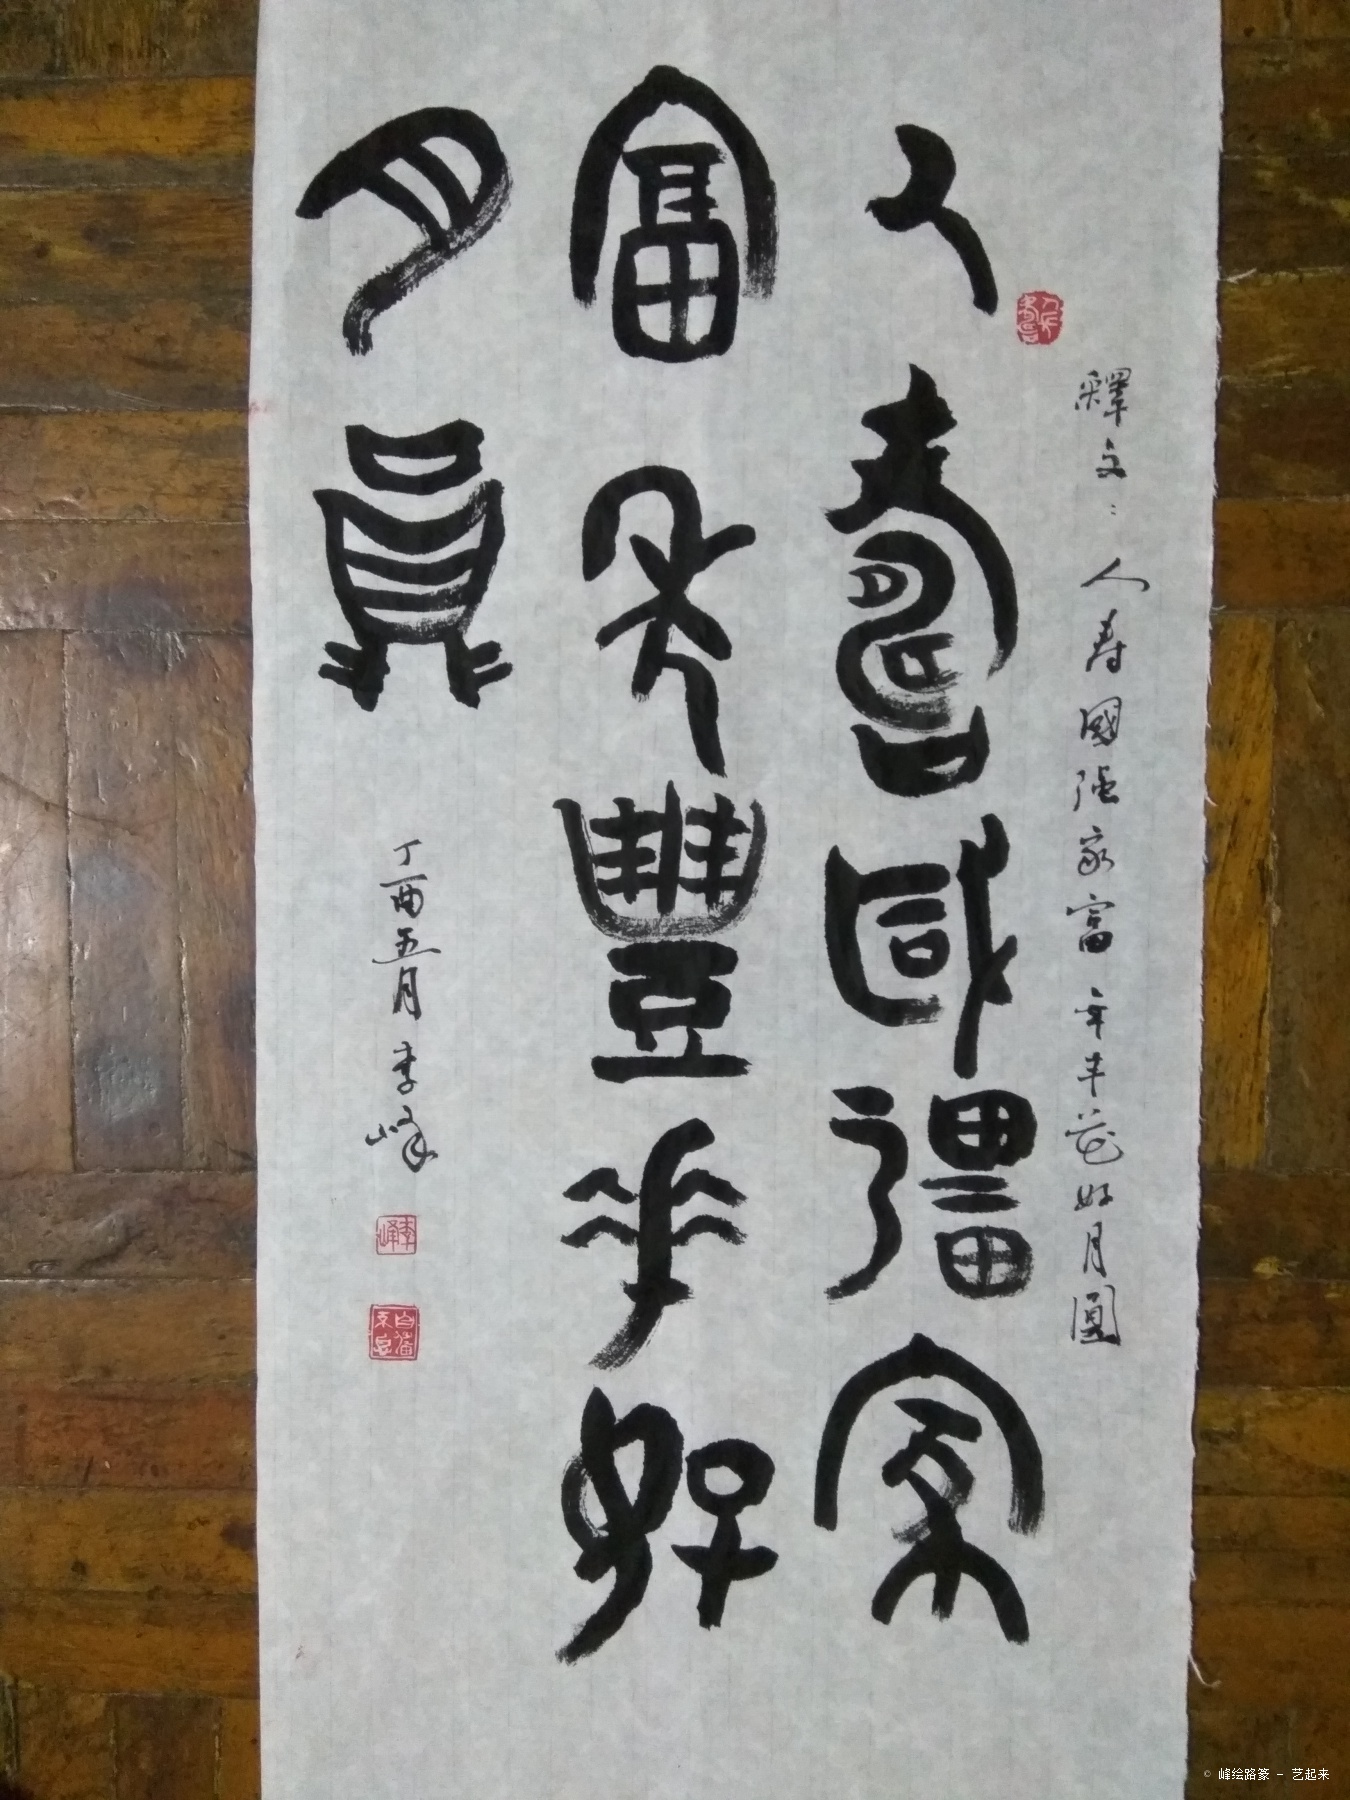 釋文：人寿國强家富年丰花好月圓
人壽國彊家
富年豐華好
月員
丁酉五月李峰
李峰
© 峰绘路篆 - 艺起来